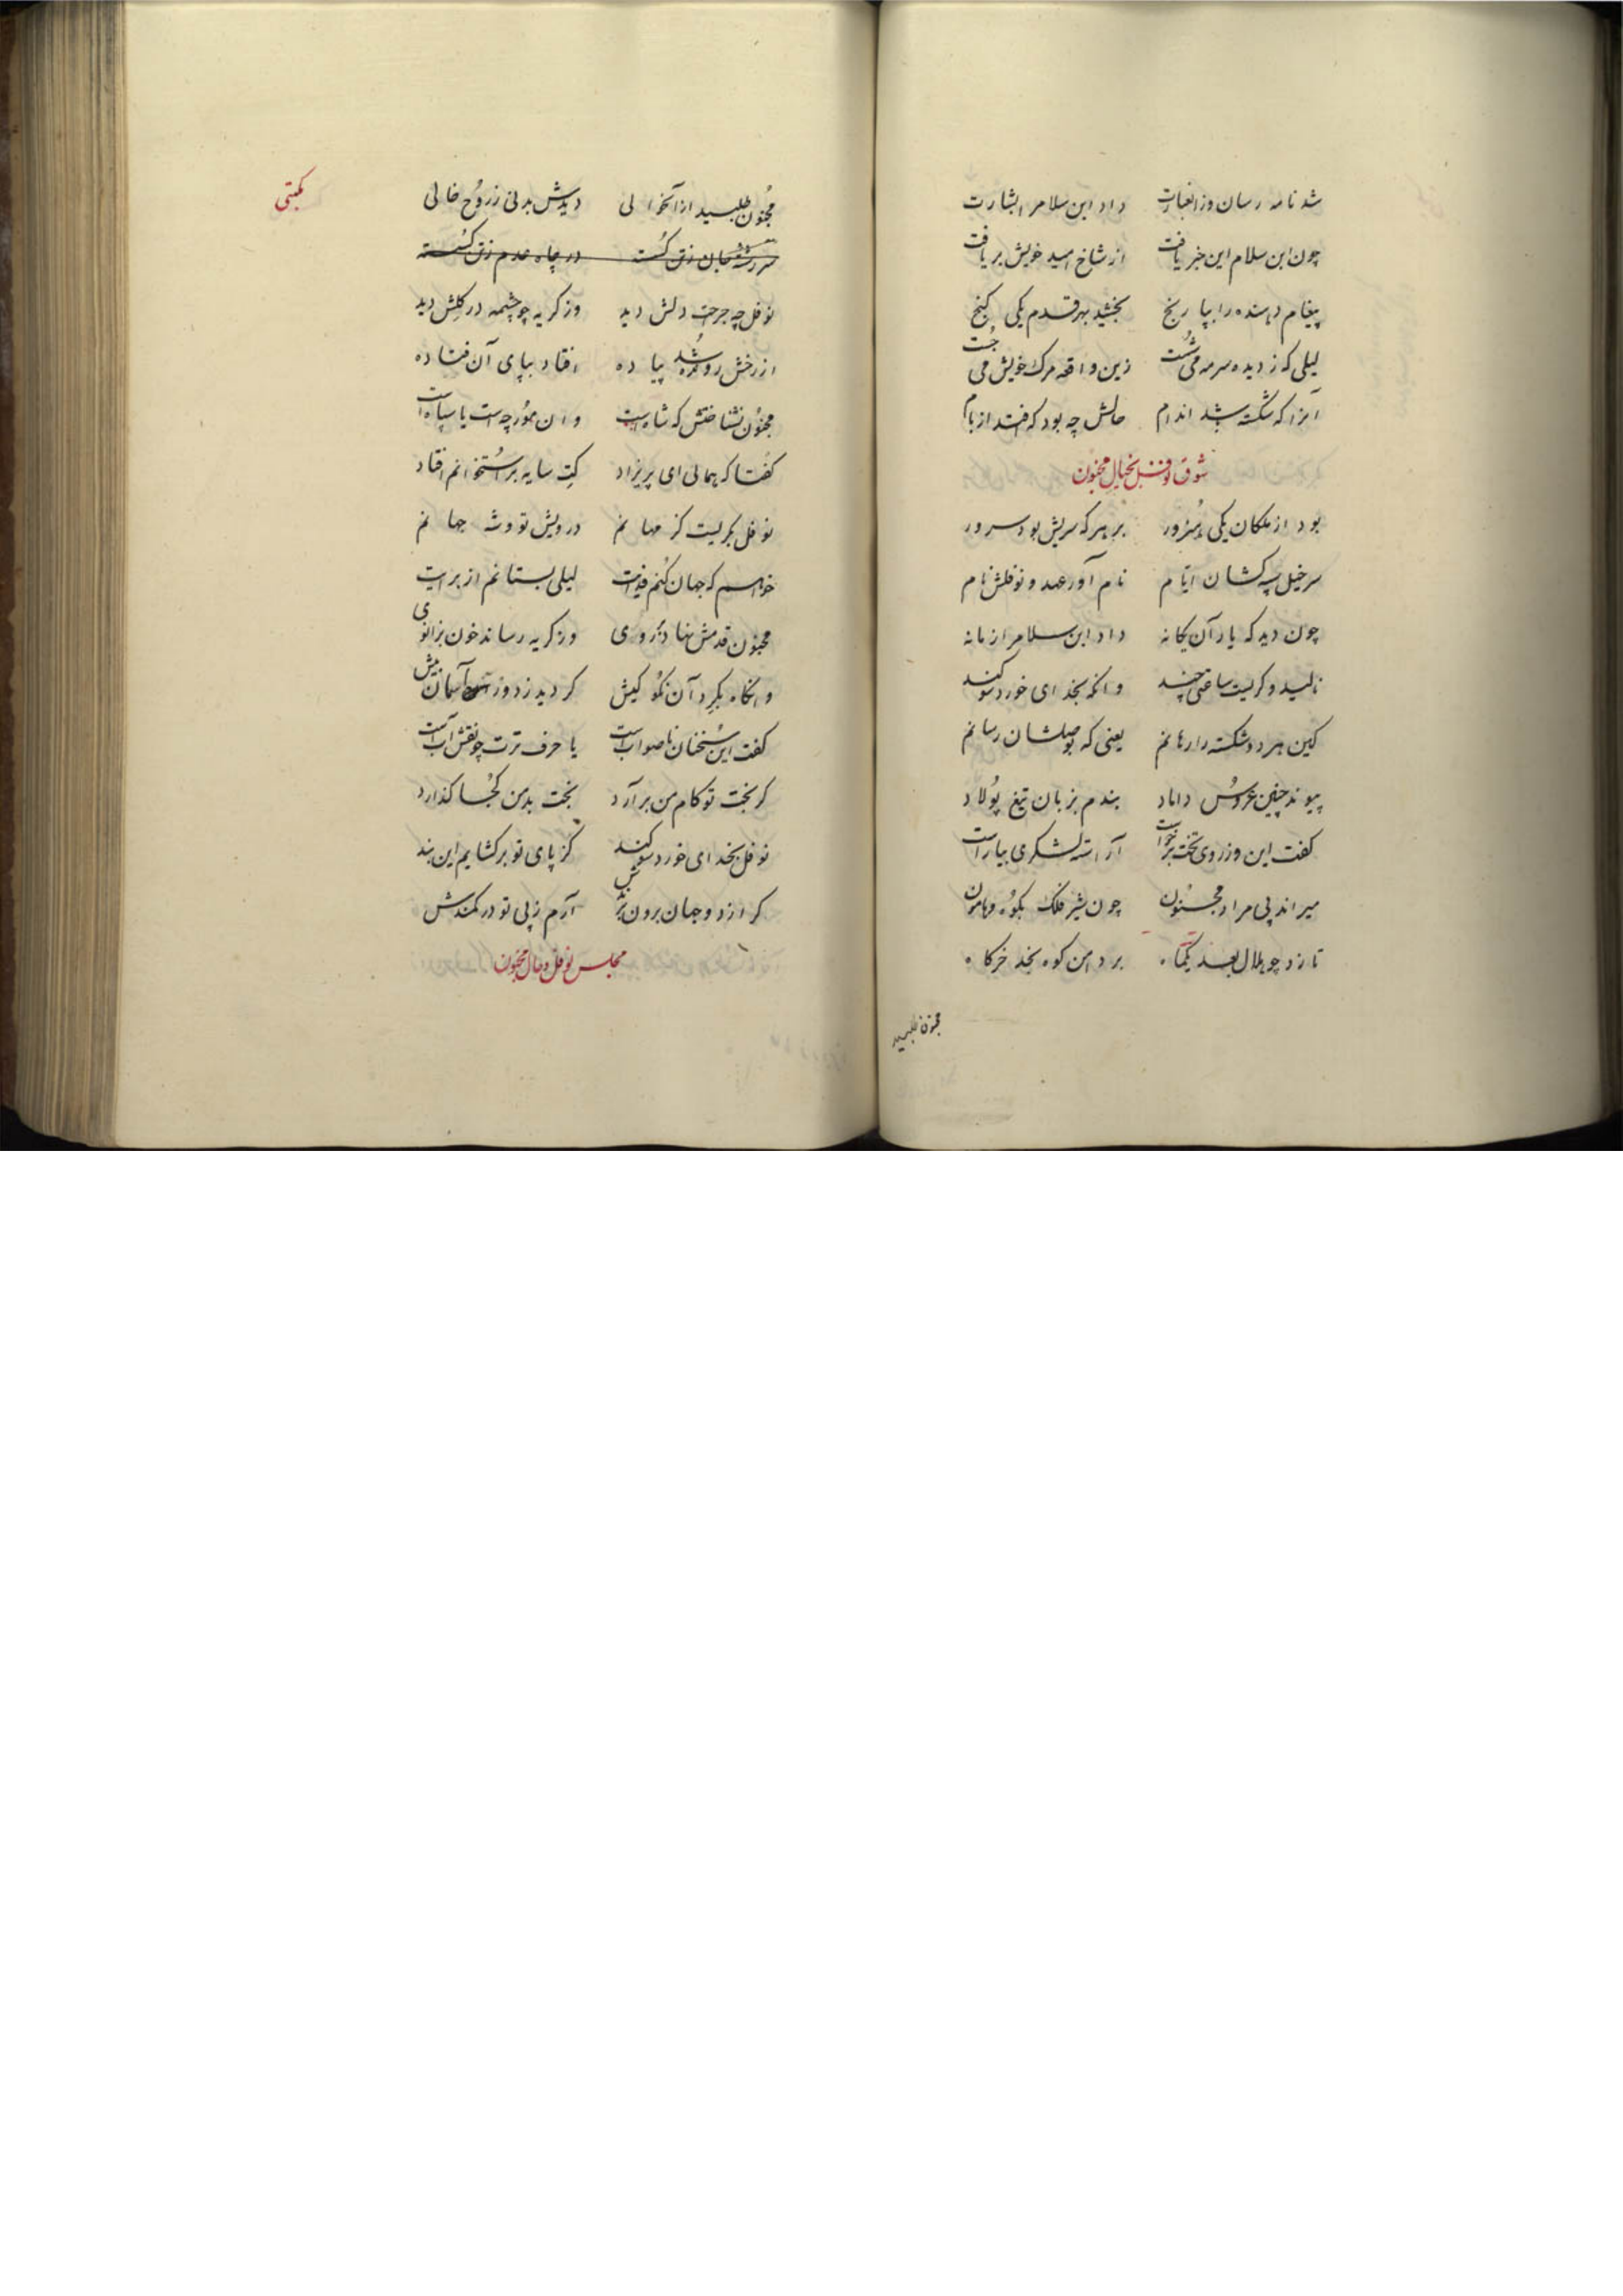 شد نامه رسان وز اشارت داد ابن سلام را بشارت
چون ابن سلام این خبر یافت از شاخ امید خویش بر یافت
پیغام دهنده را بپا رنج بخشید بهر قدم یکی کنج
لیلی که ز دیده سرمه می شست زین واقعه مرک خویش می جست
آنرا که شکسته شد اندام حالش چه بود که افتد از بام
شوق نوفل بخیال مجنون
بود از ملکان یکی هنرور بر هر که سریش بود سرور
سر خیل سپه کشان ایام نام آور عهد و نوفلش نام
چون دید که یار آن یکانه داد ابن سلام را زمانه
نالید و کریست ساعتی چند وانکه بخدای خورد سوکند
کین هر دو شکسته را رهانم یعنی که بوصلشان رسانم
پیوند چنین عروس داماد بندم بزبان تیغ پولاد
کفت این وز روی تخت برخواست آراسته لشکری بیاراست
میراند پی مراد مجنون چون شیر فلک بکوه و هامون
تا زد چو هلال بعد یکماه بر دامن کوه نجد خرکاه
مجنون طلبید
مجنون طلبید از آنحوالی دیدش بدنی ز روح خالی
سر رشته جان زتن کسسته در چاه عدم زتن کسسته
نوفل چه جرحت دلش دید وز کریه چو چشمه در کلش دید
از رخش روشده پیاده افتاد بپای آن فتاده
مجنون نشناختش که شاه است و ان مورچه است یا سپاه است
کفتا که همائی ای پریزاد کت سایه بر استخوانم افتاد
نوفل بکریست کز مهانم درویش تو و شه جهانم
خواهم که جهان کنم فدایت لیلی بستانم از برایت
مجنون قدمش نهاد بر روی وز کریه رساند خون بزانوی
وانکاه بکرد آن نکو کیش کردید ز دور آسمان بیش
کفت این سخنان ناصواب است یا حرف ترت چو نقش آب است
کر بخت تو کام من برآرد بخت بد من کجا کذارد
نوفل بخدای خورد سوکند کز پای تو برکشایم این بند
کر از دو جهان برون برندش آرم ز پی تو در کمندش
مجلس نوفل و حال مجنون